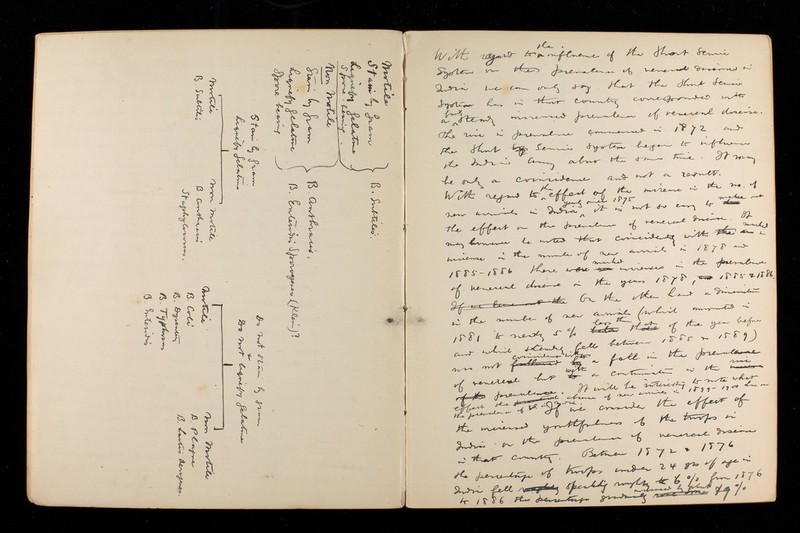 Motile
Stain by Gram
Liquefy Gelatine
Spore bearing
B. Subtilis.
Non Motile
Stain by Gram
Liquefy Gelatine
Spore bearing
B Anthracis.
B. Enteritidis Sporogenes (Klein)?
Stain by Gram
Liquefy Gelatine
Motile
B Subtilis
Non Motile
B Anthracis
Staphylococcus.
Do not stain by Gram
Do not liquefy Gelatine
Motile
B Coli
B. Dysentery
B. Typhosus
B Enteritidis
Non Motile
B Plague
B. Lactis Aerogenes.
With regard to the influence of the Short Service
System on the prevalence of venereal disease in
India we can only say that the Short Service
System has in that country corresponded with
a steady increased prevalence of venereal disease.
The rise in prevalence commenced in 1872 and
the Short Service System began to influence
the Indian Army about the same time. It may
be only a coincidence and not a result.
With regard to the effect of the increase in the no. of
new arrivals in India yearly since 1875 it is not so easy to
the effect on the prevalence of venereal disease. It
may however be noted that coincidently with
increase in the number of new arrivals in 1878 and
1885-1886 there were marked increases in the prevalence
of venereal disease in the years 1878, 1885 & 1886.
On the other hand a diminution
in the number of new arrivals (which amounted in
1881 to nearly 5% less than that of the year before
and which steadily fell between 1885 & 1889)
was not coincident with a fall in the prevalence
of venereal but with a continuation in the rise
of the prevalence. It will be interesting to note what
effect the absence of new arrivals in 1899-1900 has on
the prevalence of V.D. in India. If we consider the effect of
the increased youthfulness of the troops in
India on the prevalence of venereal disease
in that country. Between 1872 & 1876
the percentage of troops under 24 yrs of age in
India fell speaking roughly to 6% from 1876
to 1886 the percentage gradually increased by about 49%